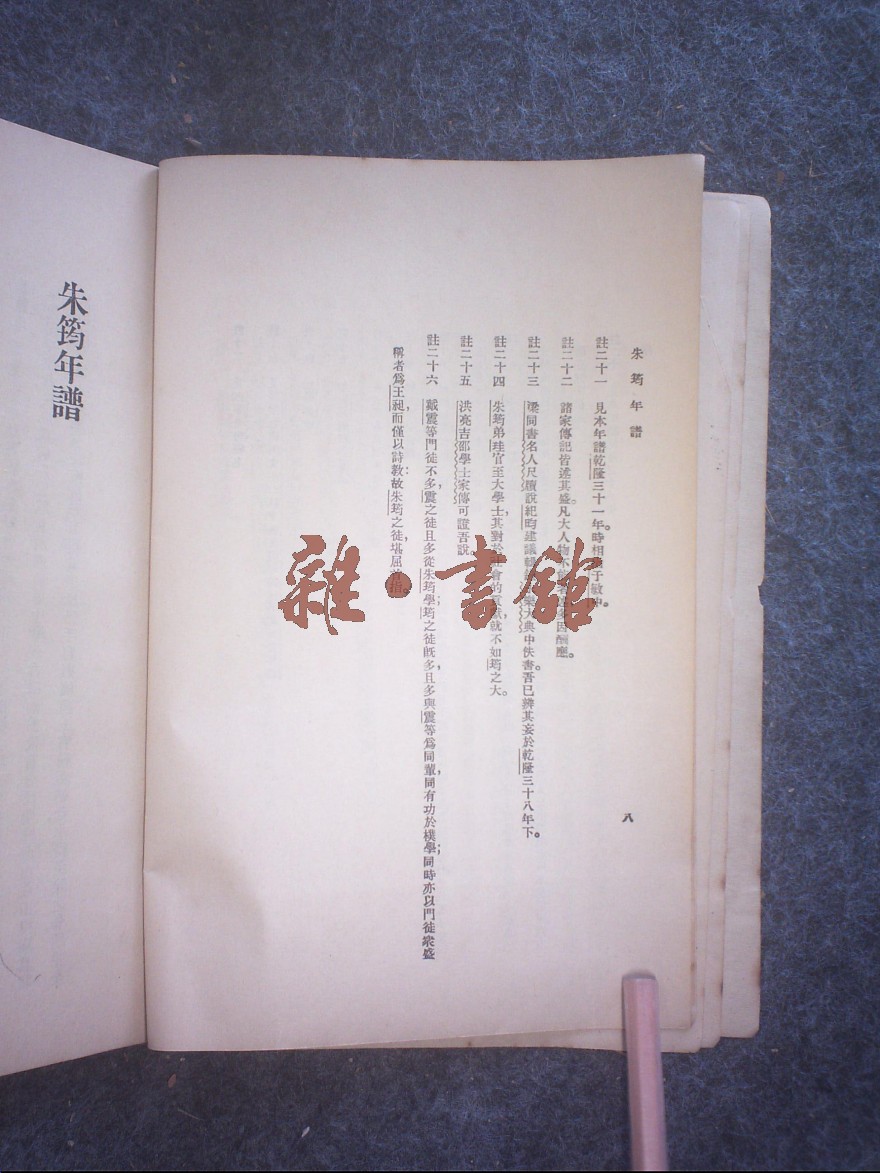 朱筠年譜
八
註二十一　見本年譜乾隆三十一年。時相于敏中。
註二十二　諸家傳記皆述其盛。凡大人物不因酬應。
註二十三　梁同書名人尺牘說紀昀建議輯樂大典中佚書。吾已辨其妄於乾隆三十八年下。
註二十四　朱筠弟珪官至大學士，其對於社會的貢獻就不如筠之大。
註二十五　洪亮吉邵學士家傳可證吾說。
註二十六　戴震等門徒不多，震之徒且多從朱筠學；筠之徒旣多且多與震等爲同輩，同有功於樸學；同時亦以門徒衆盛
稱者爲王昶，而僅以詩敎：故朱筠之徒，堪屈首指。
朱筠年譜
雜·書館